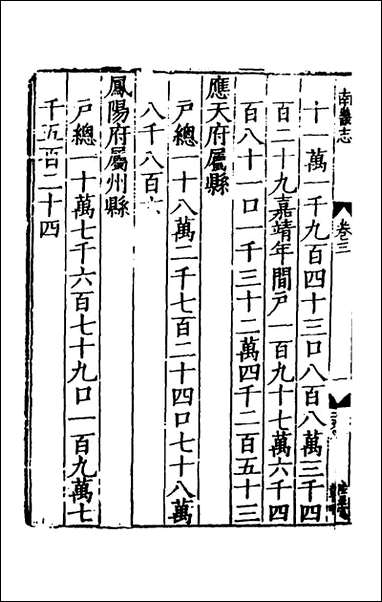 南畿志 卷三
十一萬一千九百四十三口八百八萬三千四
百二十九嘉靖年間戸一百九十七萬六千四
百八十一口一千三十二萬四千二百五十三
應天府屬縣
戸總一十八萬二千七百二十四口七十八萬
八千八百六
鳳陽府屬州縣
戸總一十萬七千六百七十九口一百九萬七
千五百二十四